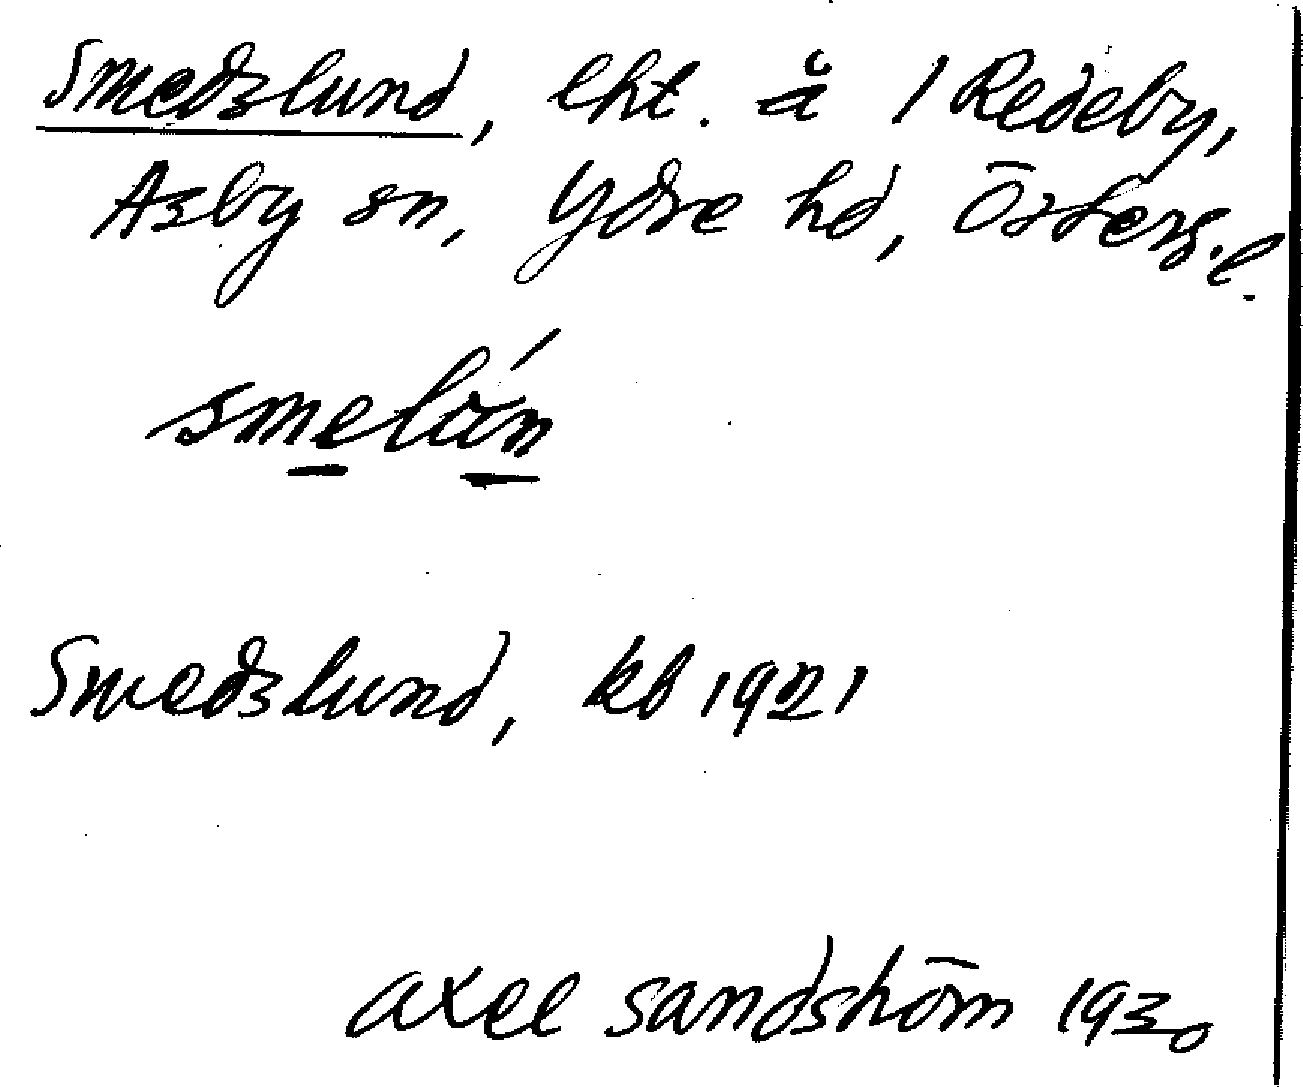 Smedslund, lht. å 1 Redeby,
Asby sn, Ydre hd, Österg. l.
smelún
Smedslund, kb 1921
Axel Sandström 1930